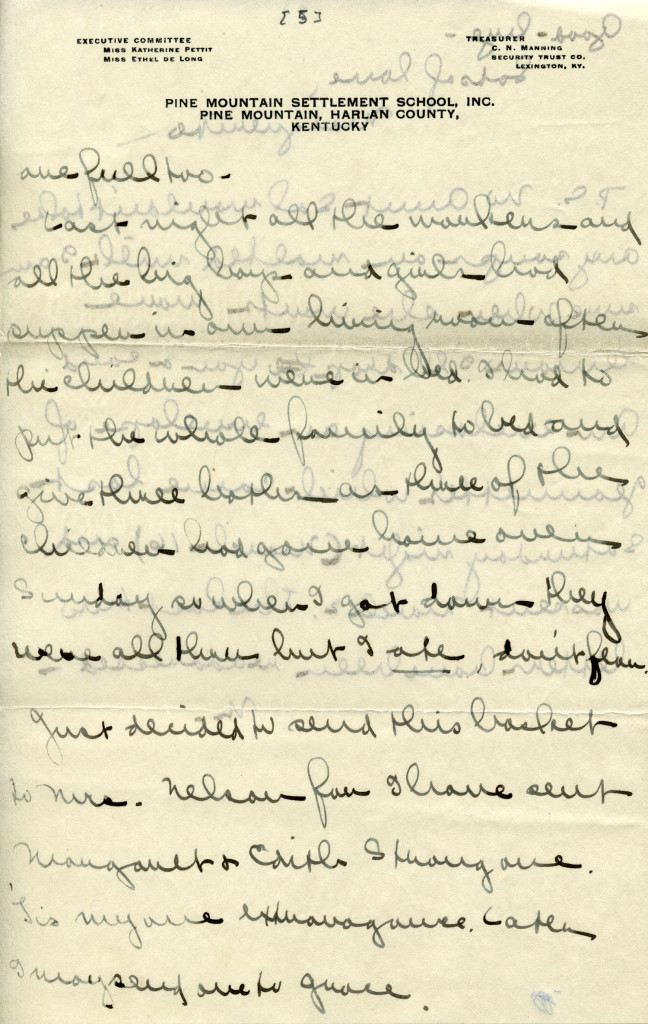 [5]
EXECUTIVE COMMITTEE
MISS KATHERINE PETTIT
MISS ETHEL DE LONG
TREASURER
C. N. MANNING
SECURITY TRUST CO.
LEXINGTON, KY.
PINE MOUNTAIN SETTLEMENT SCHOOL, INC.
PINE MOUNTAIN, HARLAN COUNTY,
KENTUCKY
are full too-
Last night all the workers and
all the big boys and girls had
supper in our living room after
the children were in bed. I had to
put the whole family to bed and
give three baths as three of the
children had gone home over
Sunday so when I got down they
were all thru but I ate, don't fear.
Just decided to send this basket
to Mrs. Nelson for I have sent
Margaret & Edith Strong one.
'Tis my one extravagance. Later
I may send one to Grace.